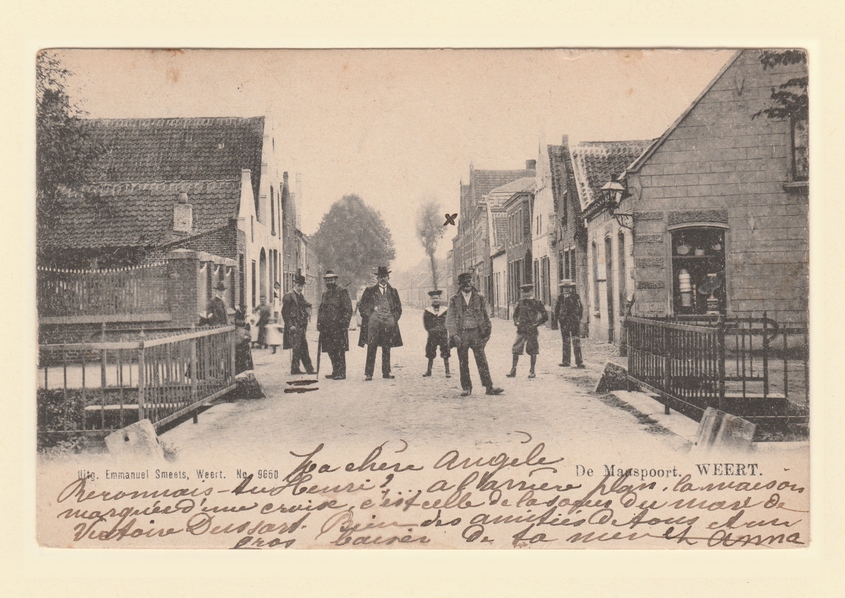 Uitg. Emmanuel Smeets, Weert. No. 9650
De Maaspoort. WEERT.
Ma chère Angèle
Reconnais-tu Henri? à l'arrière plan, la maison
marquée d'une croix, c'est celle de la soeur du mari de
Victoire Dussart. Bien des amitiés de tous et un
gros baiser de ta mère Anna